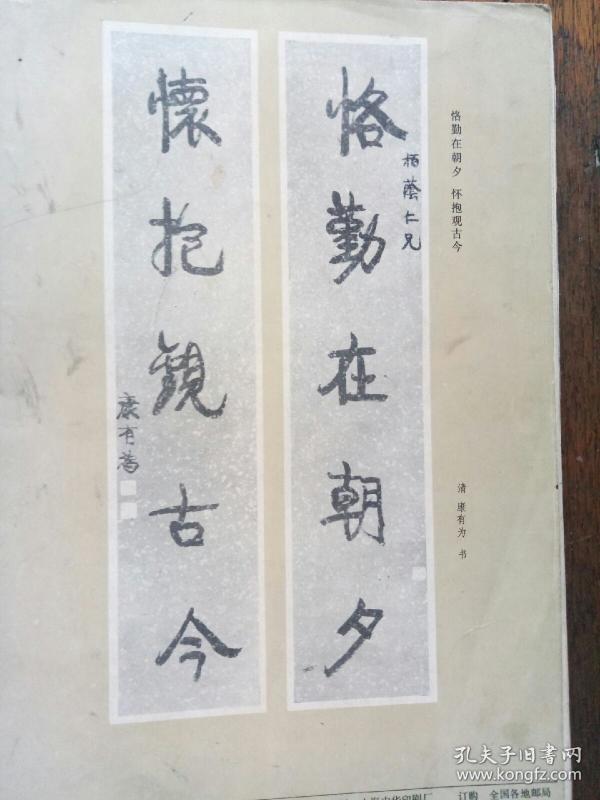 恪勤在朝夕 怀抱观古今
清 康有为 书
恪勤在朝夕
栢蔭仁兄
懷抱觀古今
康有為
订购 全国各地邮局
孔夫子旧书网
www.kongfz.com